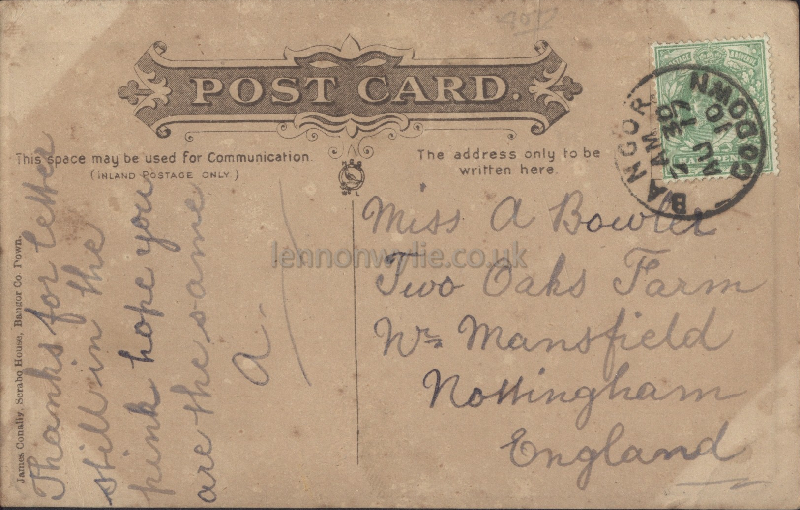 POST CARD.
This space may be used for Communication.
(INLAND POSTAGE ONLY.)
The address only to be
written here.
BANGOR CO DOWN
AU 17
10
Thanks for letter
still in the
pink hope you
are the same
A.
Miss A Bowler
Two Oaks Farm
Nr Mansfield
Nottingham
England
James Conally, Scrabo House, Bangor Co. Down.
lennonwylie.co.uk